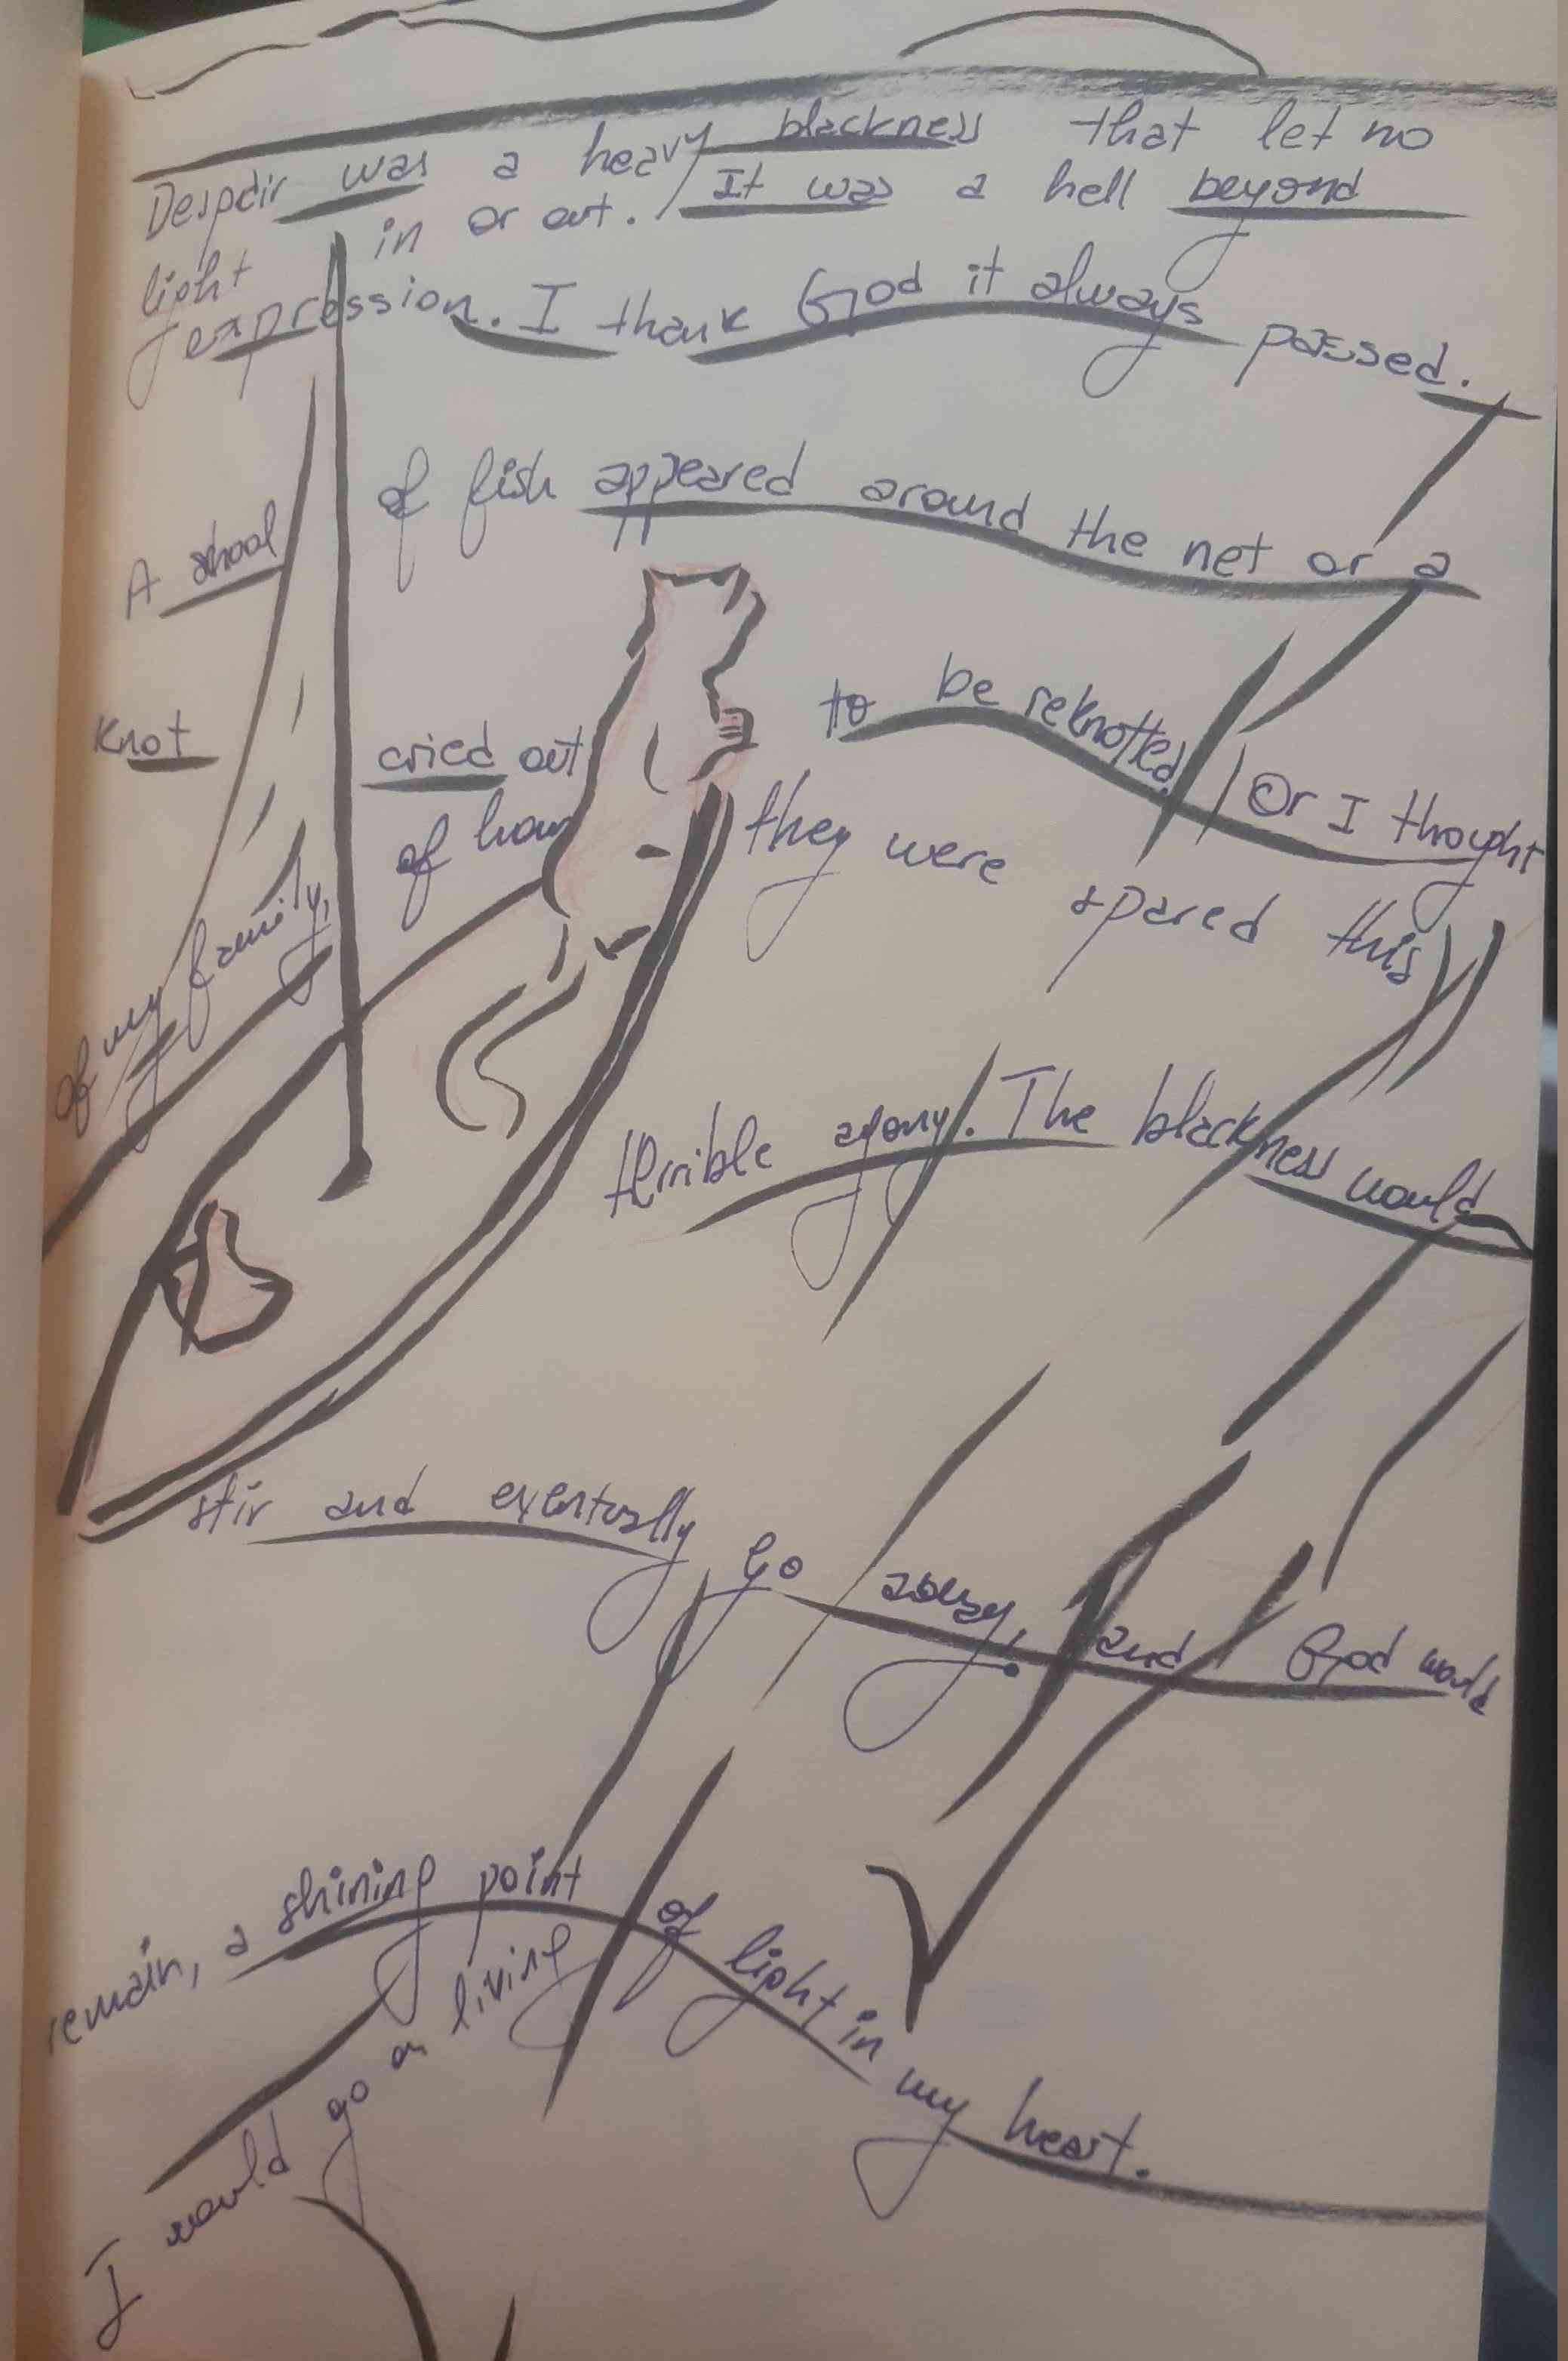 Despair was a heavy blackness that let no
light in or out. It was a hell beyond
expression. I thank God it always passed.
A shool of fish appeared around the net or a
knot cried out to be reknotted. Or I thought
of my family, of how they were spared this
terrible agony. The blackness would
stir and eventually go away, and God would
remain, a shining point of light in my heart.
I would go on living